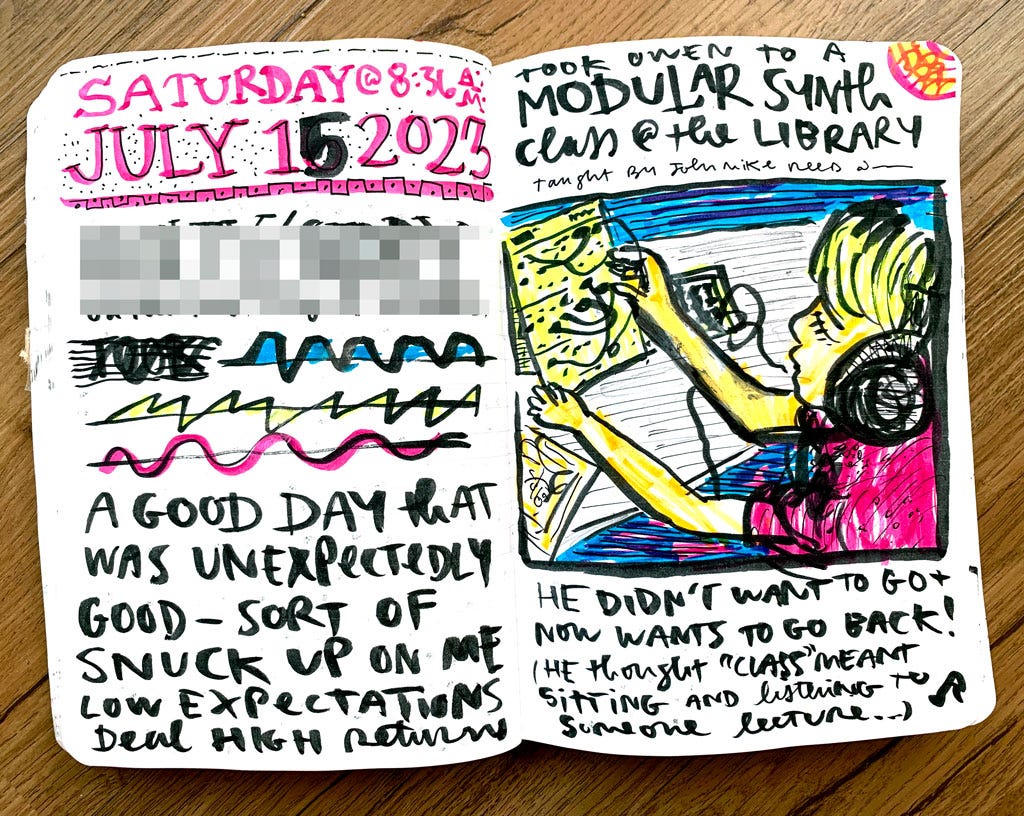 SATURDAY @ 8:36 A.M.
JULY 15 2023
TOOK
A GOOD DAY thAT
WAS UNEXpECTEDLY
GOOD – SORT OF
SNUCK UP ON ME
LOW EXPECTATIONS
Deal HIGH returns
TOOK OWEN TO A
MODULAR SYNTH
class @ the LIBRARY
taught By John Mike
HE DIDN'T WANT TO GO +
NOW WANTS TO GO BACK!
(HE thought "CLASS" MEANT
SITTING AND listening to
someone lecture...)